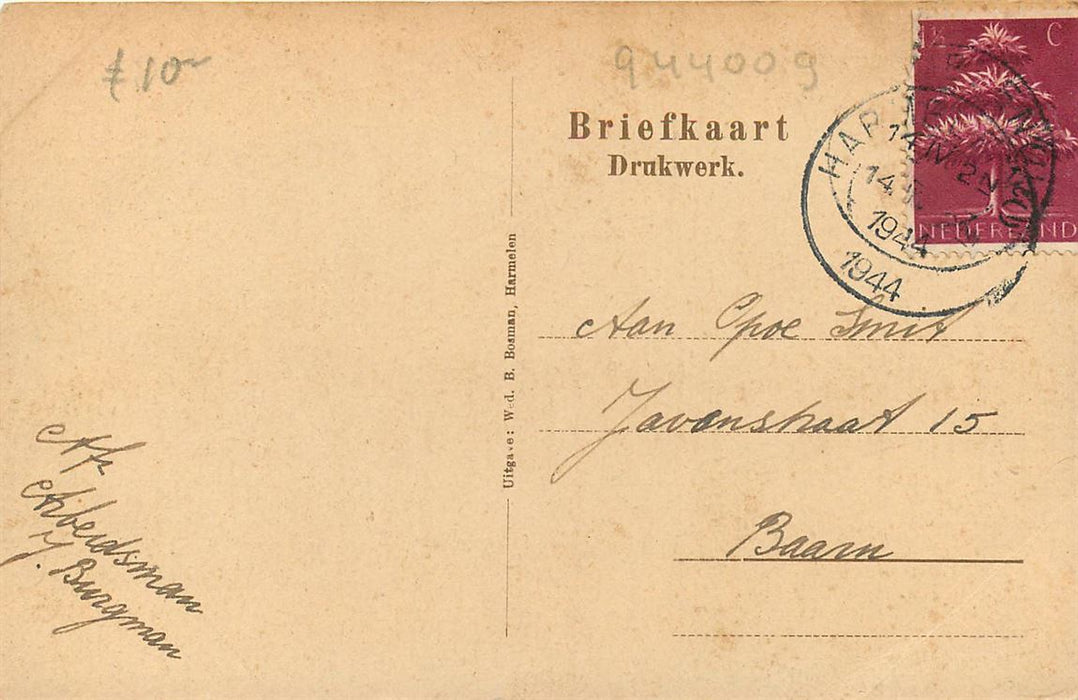 £ 10~
944009
1½ C
NEDERLAND
14 IV 2N
1944
1944
Briefkaart
Drukwerk.
Uitgave: Wed. B. Bosman, Harmelen
Aan Opoe Smit
Javastraat 15
Baarn
Af.
Arbeidsman
J. Burgman